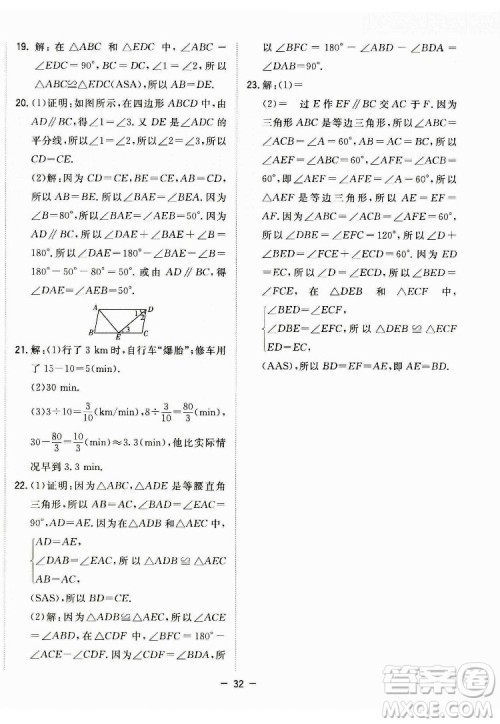 19. 解：在 △ABC 和 △EDC 中，∠ABC＝
∠EDC＝90°，BC＝DC，∠1＝∠2，所以
△ABC≌△EDC(ASA)，所以 AB＝DE.
20. (1)证明：如图所示，在四边形 ABCD 中，
AD∥BC，得∠1＝∠3. 因为 DE 是∠ADC 的
平分线，所以∠1＝∠2，所以∠2＝∠3，所以
CD＝CE.
(2)解：因为 CD＝CE，BE＝CE，CD＝
AB，所以 AB＝BE，所以∠BAE＝∠BEA. 因为
∠B＝80°，所以∠B＋∠BAE＋∠BEA＝
180°，所以∠BAE＝50°. 或由 AD∥BC，得
∠DAE＝∠BEA＝50°.
A
D
1
2
3
B
E
C
21. 解：(1)行了 3 km时，自行车“爆胎”；修车用
了 15－10＝5(min).
(2)30 min.
(3)3÷10＝3/10(km/min)，8÷3/10＝80/3(min)，
30－80/3＝10/3≈3.3(min)，他比实际情
况早到 3.3 min.
22. (1)证明：因为△ABC，△ADE 是等腰直角
三角形，所以 AB＝AC，∠BAD＝∠EAC＝
90°，AD＝AE. 在△ADB 和△AEC 中，
AD＝AE，
∠DAB＝∠EAC，所以 △ADB≌△AEC
AB＝AC，
(SAS)，所以 BD＝CE.
(2)解：因为△ADB≌△AEC，所以∠ACE＝
∠ABD. 在△CDF 中，∠BFC＝180°－
∠ACE－∠CDF. 因为∠CDF＝∠ADB，所
以∠BFC＝180°－∠BAC＝∠BFC＝
∠DAB＝90°.
23. 解：(1)＝
(2)＝ 过 E 作 EF∥BC 交 AC 于 F. 因为
三角形 ABC 是等边三角形，所以∠ABC＝
∠ACB＝∠A＝60°，AB＝AC＝BC，所以
∠AEF＝∠ABC＝60°，∠AFE＝∠ACB＝
60°，即∠AEF＝∠AFE＝∠A＝60°，所以
△AEF 是等边三角形，所以 AE＝EF＝AF.
因为∠ABC＝∠ACB＝∠AFE＝60°，所以
∠DBE＝∠EFC＝120°，∠D＋∠BED＝
∠FCE＋∠ECD＝60°. 因为 DE＝
EC，所以∠D＝∠ECD，所以∠BED＝
∠FCE，所以在△DEB 和△ECF 中，
∠DEB＝∠ECF，
∠DBE＝∠EFC，所以△DEB≌△ECF
DE＝EC，
(AAS)，所以 BD＝EF＝AE，即 AE＝BD.
－ 32 －
答案圈
MXQE.COM